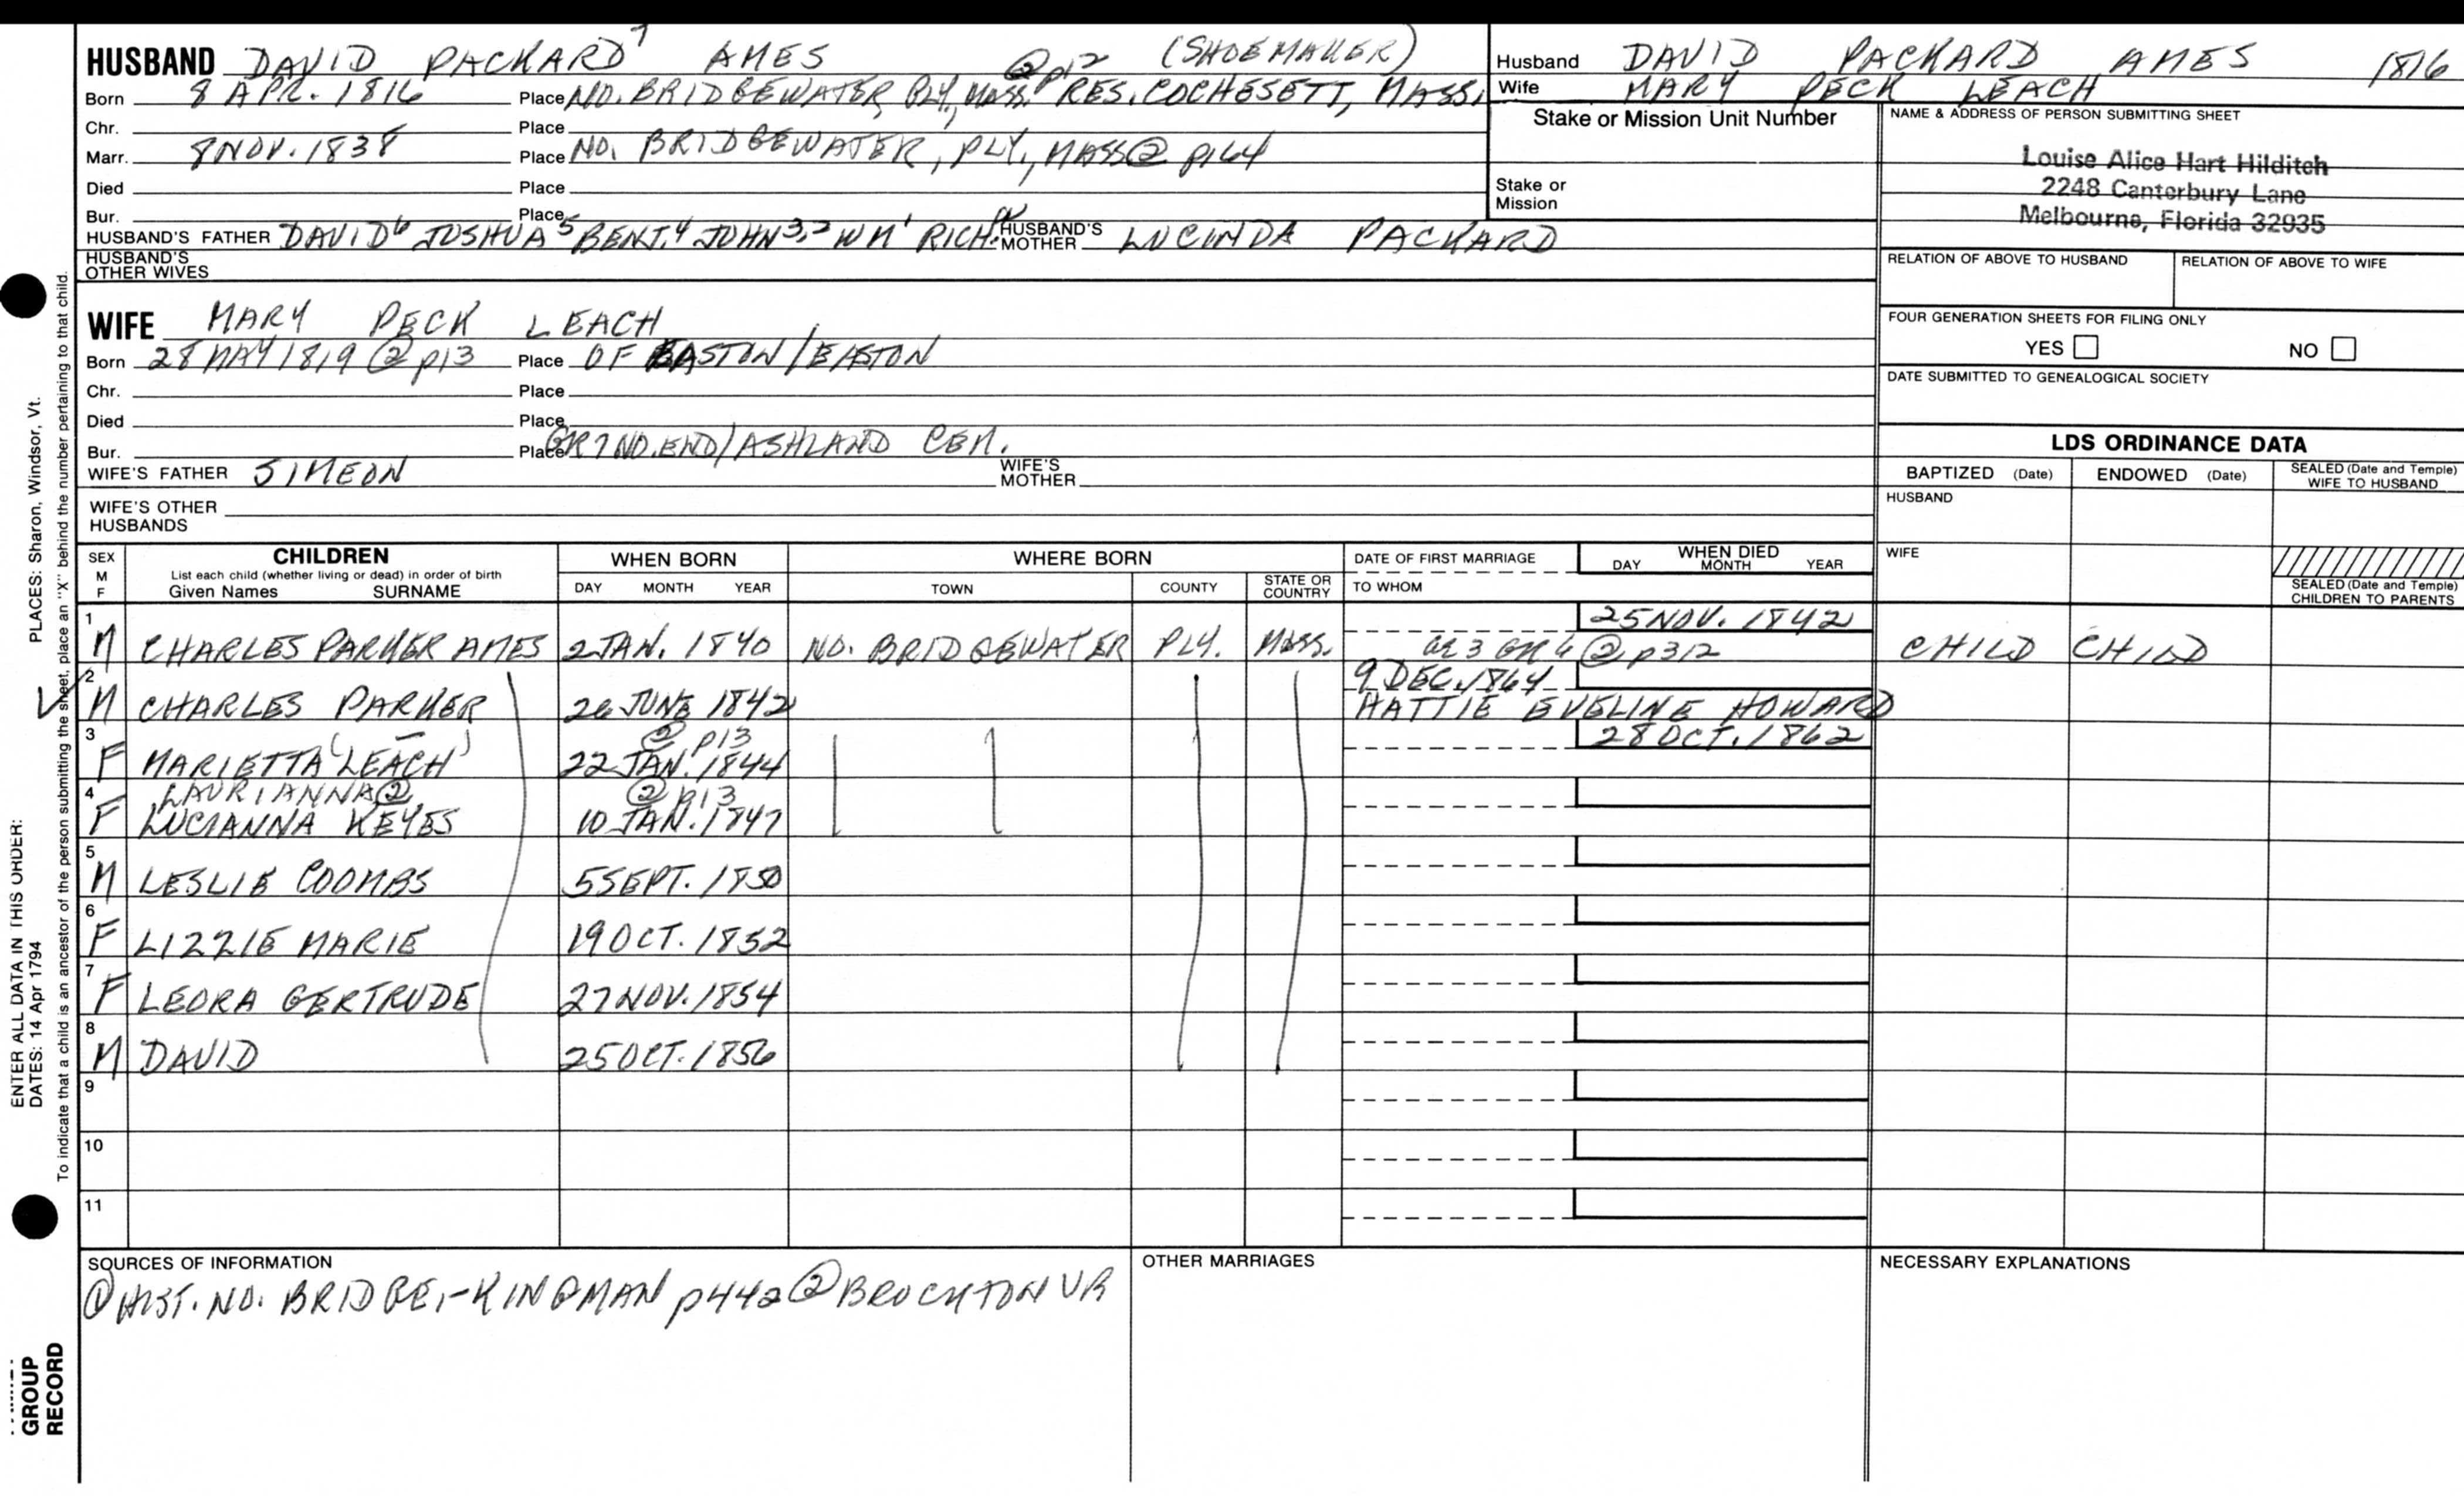 HUSBAND DAVID PACKARD 7 AMES ② p12 (SHOEMAKER)
Born 8 APR. 1816 Place NO. BRIDGEWATER, PLY., MASS. RES. COCHESETT, MASS.
Chr. Place
Marr. 8 NOV. 1838 Place NO. BRIDGEWATER, PLY., MASS ② p164
Died Place
Bur. Place
HUSBAND'S FATHER DAVID 6 JOSHUA 5 BENJ. 4 JOHN 3,2 WM 1 RICH. HUSBAND'S MOTHER LUCINDA PACKARD
HUSBAND'S OTHER WIVES
WIFE MARY PECK LEACH
Born 28 MAY 1819 ② p13 Place OF EASTON/EASTON
Chr. Place
Died Place
Bur. Place GR7 NO. END/ASHLAND CEM.
WIFE'S FATHER SIMEON WIFE'S MOTHER
WIFE'S OTHER HUSBANDS
Husband DAVID PACKARD AMES 1816
Wife MARY PECK LEACH
Stake or Mission Unit Number
Stake or Mission
NAME & ADDRESS OF PERSON SUBMITTING SHEET
Louise Alice Hart Hilditch
2248 Canterbury Lane
Melbourne, Florida 32935
RELATION OF ABOVE TO HUSBAND RELATION OF ABOVE TO WIFE
FOUR GENERATION SHEETS FOR FILING ONLY
YES NO
DATE SUBMITTED TO GENEALOGICAL SOCIETY
LDS ORDINANCE DATA
BAPTIZED (Date) ENDOWED (Date) SEALED (Date and Temple) WIFE TO HUSBAND
HUSBAND
WIFE
SEALED (Date and Temple) CHILDREN TO PARENTS
SEX M F CHILDREN WHEN BORN WHERE BORN DATE OF FIRST MARRIAGE WHEN DIED
List each child (whether living or dead) in order of birth
Given Names SURNAME DAY MONTH YEAR TOWN COUNTY STATE OR COUNTRY TO WHOM DAY MONTH YEAR
1 25 NOV. 1842
M CHARLES PARKER AMES 2 JAN. 1840 NO. BRIDGEWATER PLY. MASS. GR 3 GR 6 ② p312 CHILD CHILD
2 9 DEC. 1864
M CHARLES PARKER 26 JUNE 1842 HATTIE EVELINE HOWARD
3 ② p13 28 OCT. 1862
F MARIETTA (LEACH) 22 JAN. 1844
4 LAURIANNA ② ② p13
F LUCIANNA KEYES 10 JAN. 1847
5
M LESLIE COOMBS 5 SEPT. 1850
6
F LIZZIE MARIE 19 OCT. 1852
7
F LEORA GERTRUDE 27 NOV. 1854
8
M DAVID 25 OCT. 1856
9
10
11
SOURCES OF INFORMATION
① HIST. NO. BRIDGE.-KINGMAN p442 ② BROCKTON VR
OTHER MARRIAGES
NECESSARY EXPLANATIONS
PLACES: Sharon, Windsor, Vt.
ENTER ALL DATA IN THIS ORDER:
DATES: 14 Apr 1794
To indicate that a child is an ancestor of the person submitting the sheet, place an "X" behind the number pertaining to that child.
GROUP
RECORD